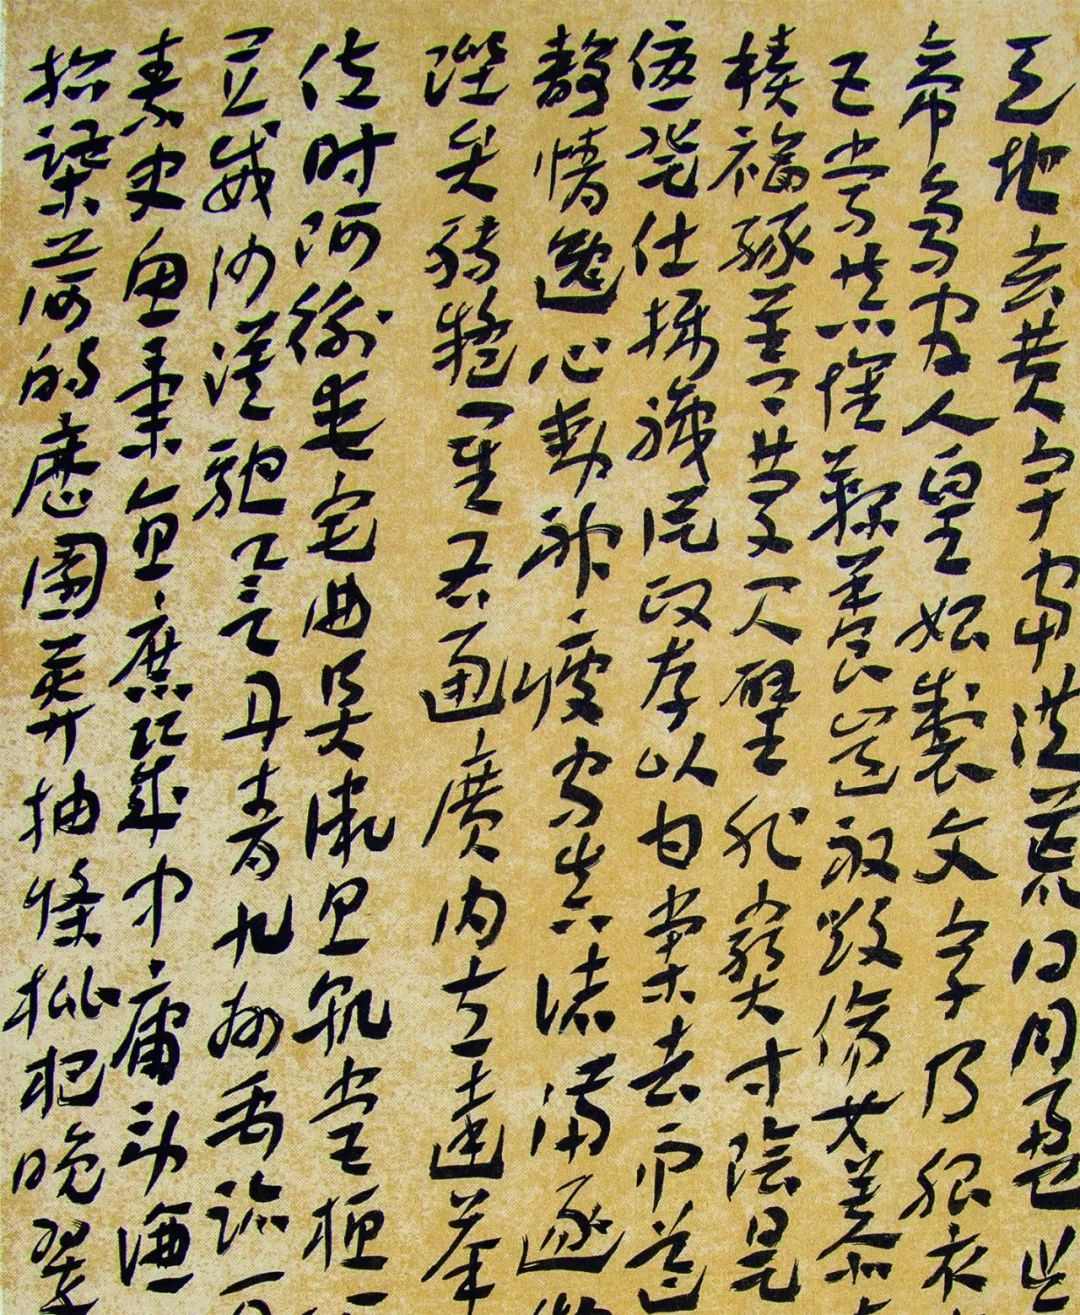 天地玄黄宇宙洪荒日月盈
帝鸟官人皇始製文字乃服衣
五常恭惟鞠養豈敢毀傷女慕
積福緣善慶尺璧非寶寸陰是
優登仕攝職從政存以甘棠去而益
靜情逸心動神疲守真志滿逐物
陛弁轉疑星右通廣內左達承
佐时阿衡奄宅曲阜微旦孰營桓
宣威沙漠馳譽丹青九州禹跡百
素史魚秉直庶幾中庸勞謙
招渠荷的歷園莽抽條枇杷晚翠